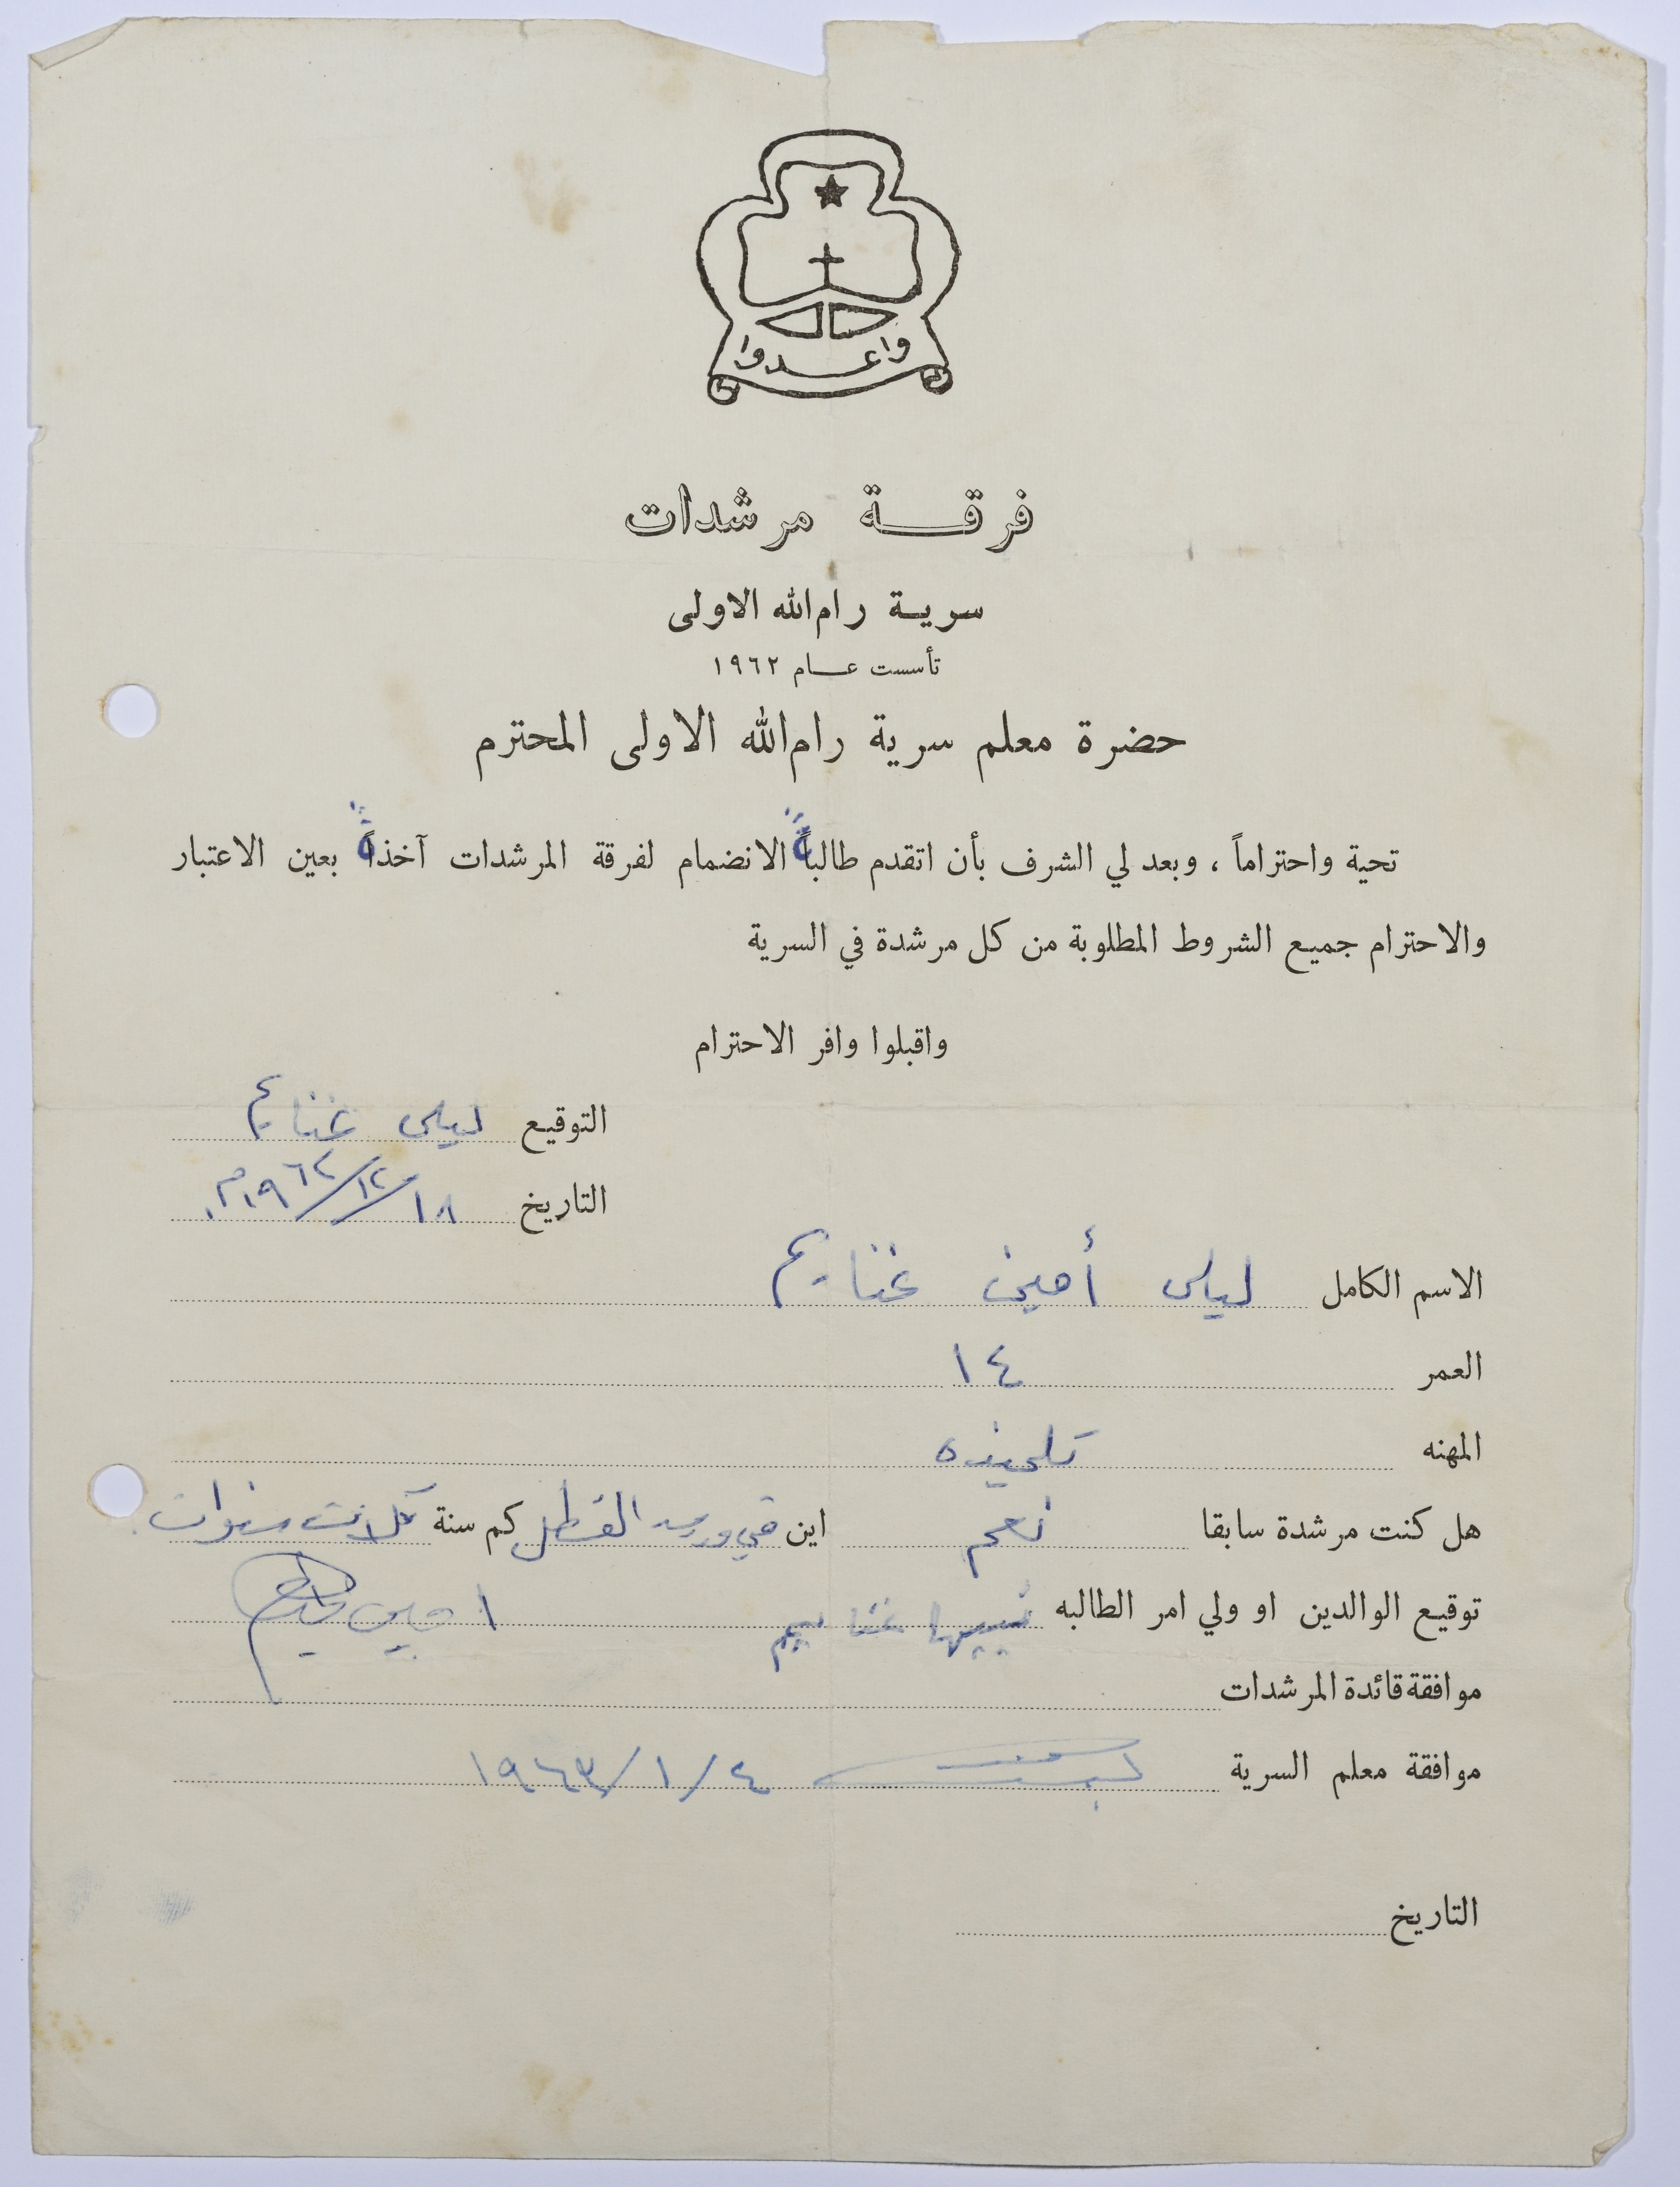 واعدوا
فرقة مرشدات
سرية رام الله الاولى
تأسست عام ١٩٦٢
حضرة معلم سرية رام الله الاولى المحترم
تحية واحتراماً ، وبعد لي الشرف بأن اتقدم طالبةً الانضمام لفرقة المرشدات آخذةً بعين الاعتبار
والاحترام جميع الشروط المطلوبة من كل مرشدة في السرية
واقبلوا وافر الاحترام
التوقيع ليلى غنايم
التاريخ ١٨/١٢/١٩٦٢م.
الاسم الكامل ليلى أمين غنايم
العمر ١٤
المهنه تلميذه
هل كنت مرشدة سابقا نعم اين في ورود القطل كم سنة ثلاث سنوات
توقيع الوالدين او ولي امر الطالبه نبيها غنايم امين غنايم
موافقة قائدة المرشدات
موافقة معلم السرية ٤/١/١٩٦٣
التاريخ